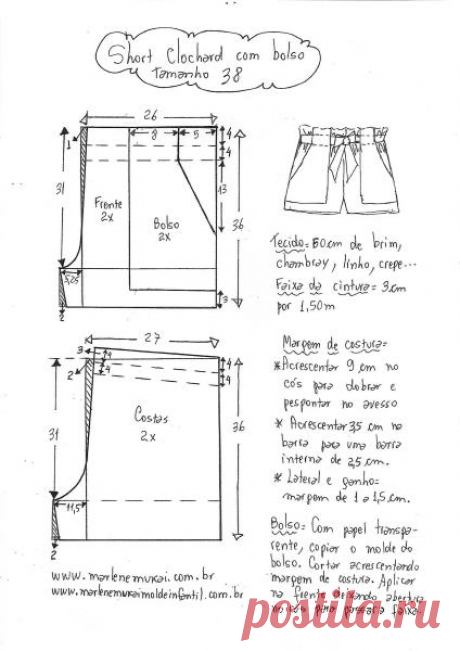 Short Clochard com bolso
Tamanho 38
26
8
5
4
4
1
13
31
Frente
2x
Bolso
2x
36
5,25
3
2
27
3
4
4
4
4
2
Costas
2x
31
36
11,5
2
Tecido= 80cm de brim,
chambray, linho, crepe...
Faixa da cintura= 3cm
por 1,50m
Margem de costura=
* Acrescentar 9 cm no
cós para dobrar e
pespontar no avesso
* Acrescentar 3,5 cm na
barra para uma barra
interna de 2,5 cm.
* Lateral e ganho=
margem de 1 a 1,5cm.
Bolso= Com papel transpa-
rente, copiar o molde do
bolso. Cortar acrescentando
margem de costura. Aplicar
na frente deixando abertura
no cós para passar a faixa.
www.marlenemukai.com.br
www.marlenemukaimoldeinfantil.com.br
postila.ru